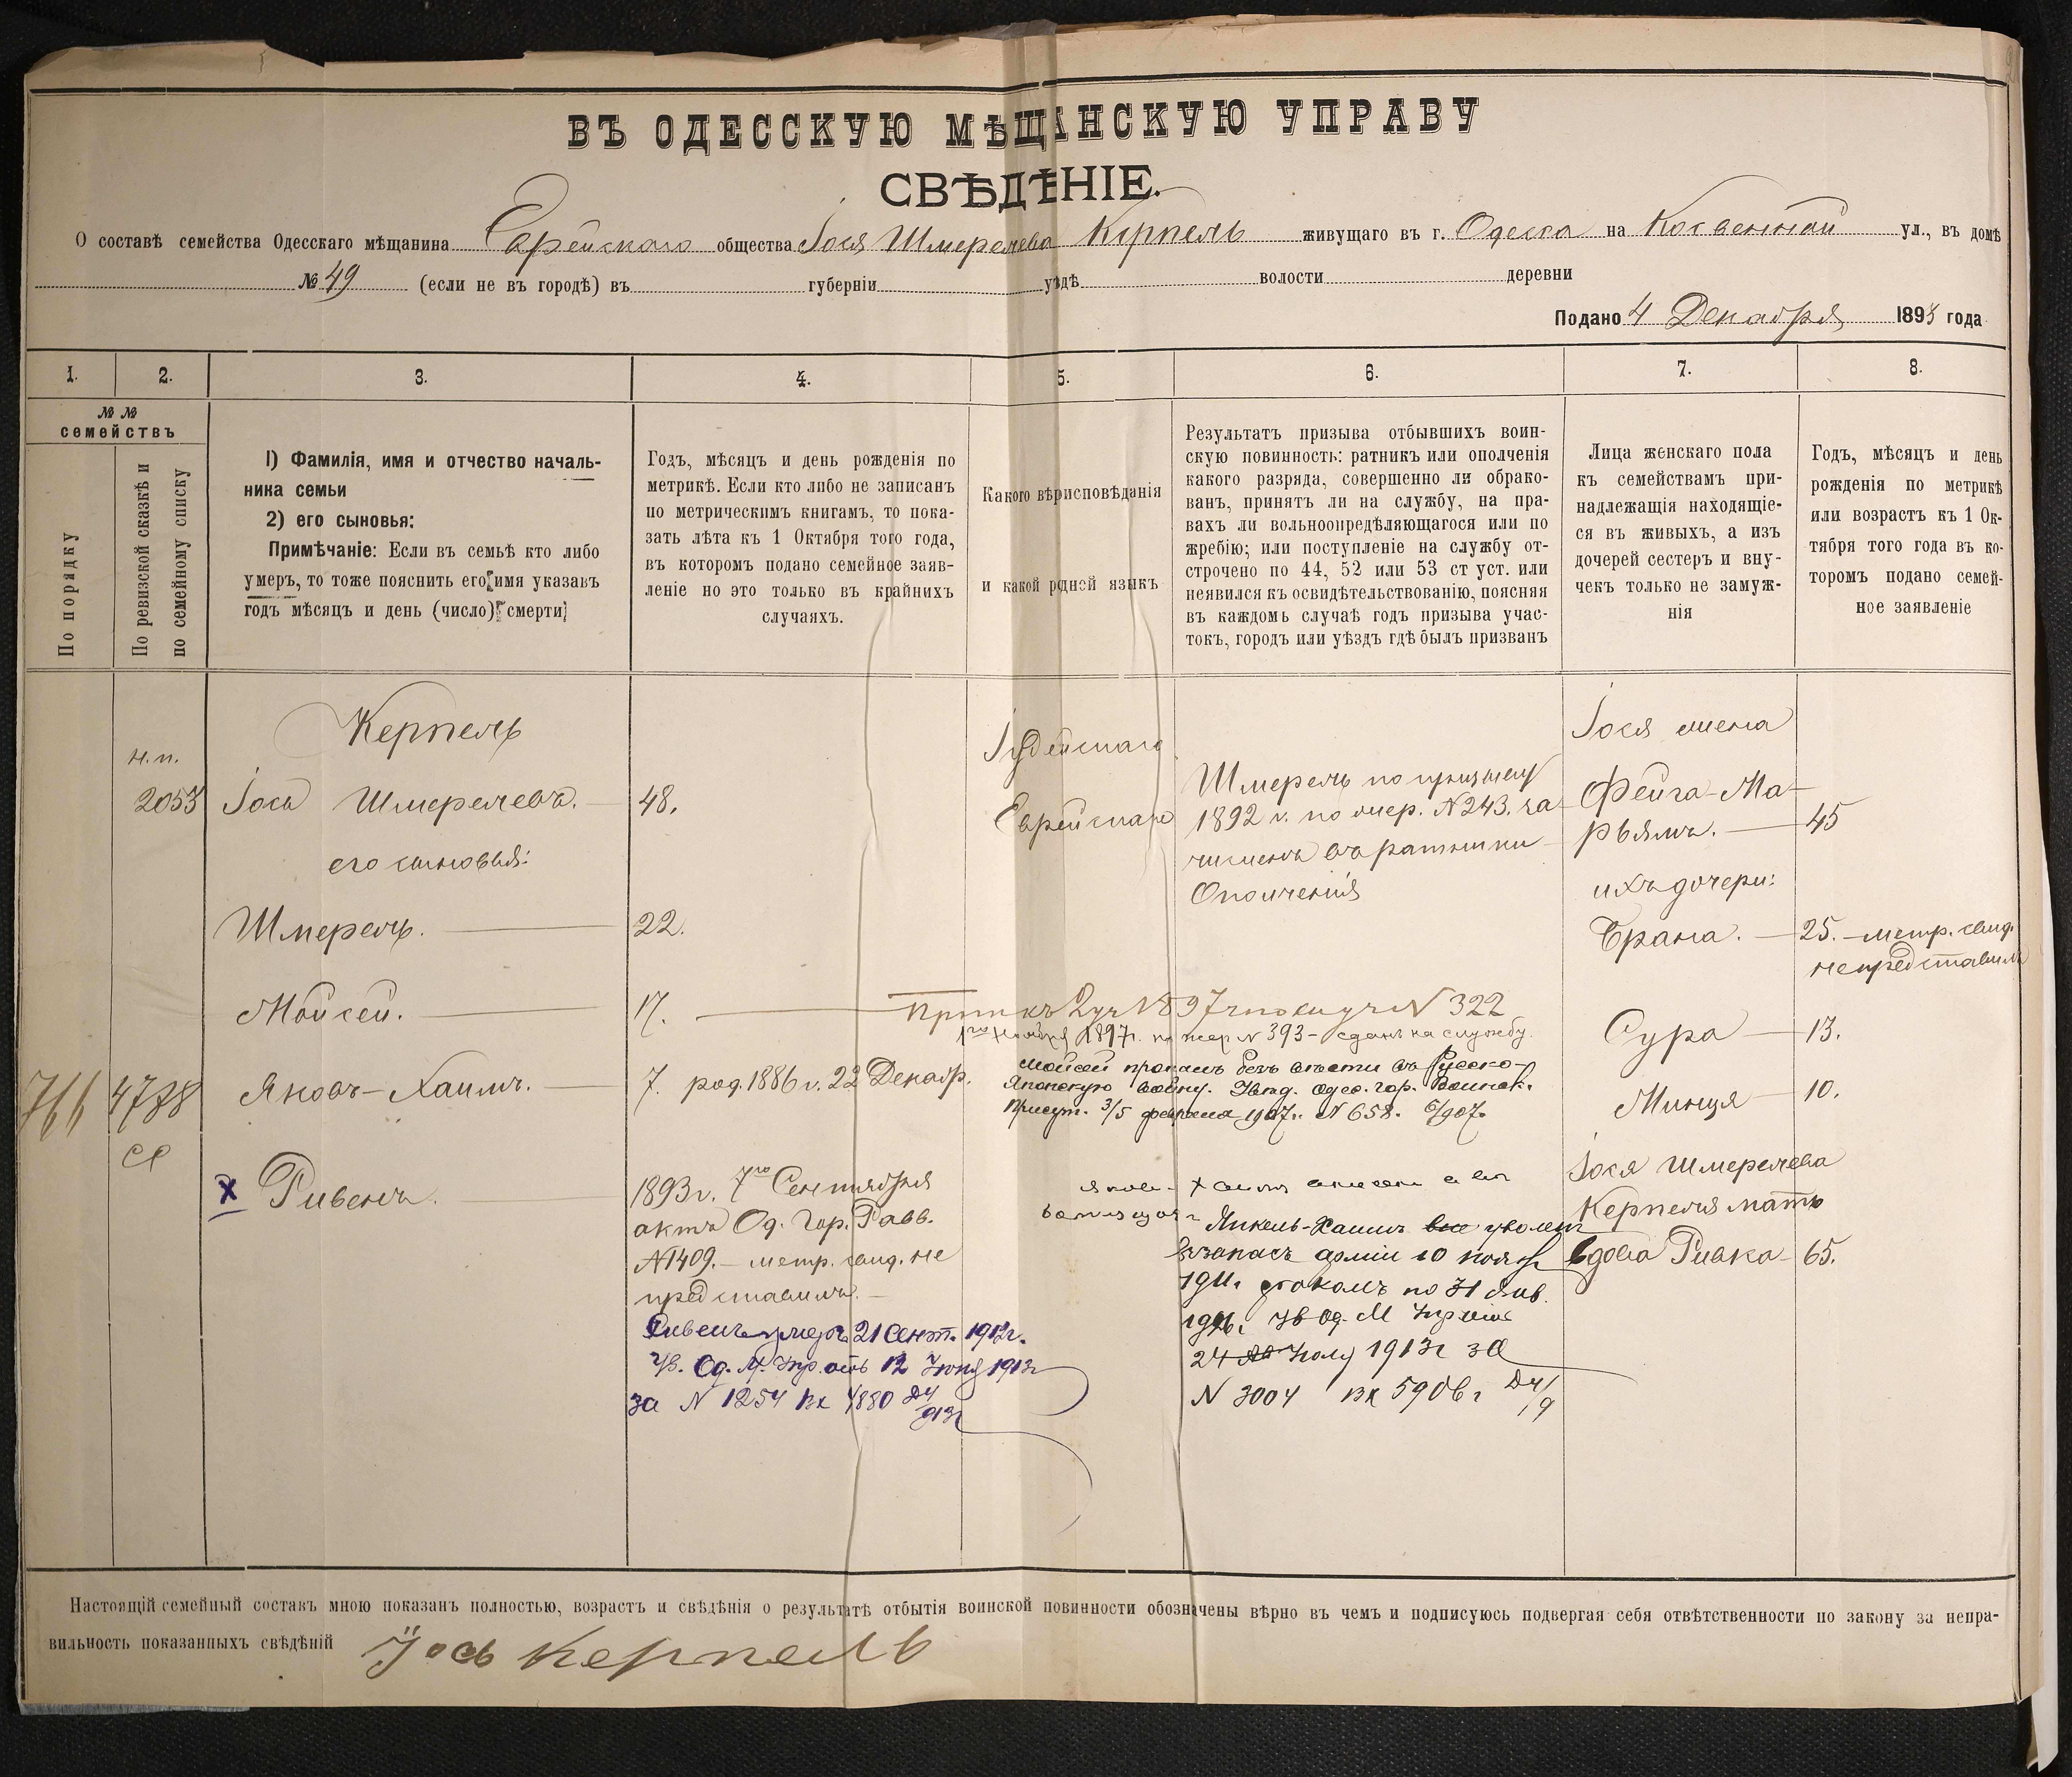 ВЪ ОДЕССКУЮ МѢЩАНСКУЮ УПРАВУ
СВѢДѢНІЕ.
О составѣ семейства Одесскаго мѣщанина Еврейскаго общества Іося Шмерелева Керпель живущаго въ г. Одесса на Косвенной ул., въ домѣ
№ 49 (если не въ городѣ) въ губерніи уѣдѣ волости деревни
Подано 4 Декабря 1893 года
1. 2. 3. 4. 5. 6. 7. 8.
№ № семействъ
По порядку
По ревизской сказкѣ и по семейному списку
1) Фамилія, имя и отчество началь-
ника семьи
2) его сыновья:
Примѣчаніе: Если въ семьѣ кто либо
умеръ, то тоже пояснить его имя указавъ
годъ мѣсяцъ и день (число) смерти;
Годъ, мѣсяцъ и день рожденія по
метрикѣ. Если кто либо не записанъ
по метрическимъ книгамъ, то пока-
зать лѣта къ 1 Октября того года,
въ которомъ подано семейное заяв-
леніе но это только въ крайнихъ
случаяхъ.
Какого вѣрисповѣданія
и какой родной языкъ
Результатъ призыва отбывшихъ воин-
скую повинность: ратникъ или ополченія
какого разряда, совершенно ли обрако-
ванъ, принятъ ли на службу, на пра-
вахъ ли вольноопредѣляющагося или по
жребію; или поступленіе на службу от-
строчено по 44, 52 или 53 ст уст. или
неявился къ освидѣтельствованію, поясняя
въ каждомъ случаѣ годъ призыва учас-
токъ, городъ или уѣздъ гдѣ былъ призванъ
Лица женскаго пола
къ семействамъ при-
надлежащія находящіе-
ся въ живыхъ, а изъ
дочерей сестеръ и вну-
чекъ только не замуж-
нія
Годъ, мѣсяцъ и день
рожденія по метрикѣ
или возрастъ къ 1 Ок-
тября того года въ ко-
торомъ подано семей-
ное заявленіе
Керпель
н.п.
2053 Іось Шмерелевъ. 48.
его сыновья:
Шмерель. 22.
Мойсей. 17.
766 4778 Яковъ-Хаимъ. 7. род. 1886 г. 22 Декабр.
сп
х Рувенъ.
1893 г. 7го Сентября
актъ Од. Гор. Равв.
№1409. метр. свид. не
представилъ.
Рувенъ умеръ 21 Сент. 1912г.
Ув. Од. М. Упр. отъ 12 Іюня 1913г
за N 1254 вх 4880
Іудейскаго
Еврейскаго
Шмерель по призыву
1892 г. по жер. №243. за-
численъ въ ратники
Ополченія
322
1го Ноября 1897г. по жер № 393 - сданъ на службу.
Мойсей пропалъ безъ вѣсти въ Русско-
Японскую войну. Увѣд. Одес. гор. Воинск.
Присут. 3/5 февраля 1907г. № 658. 6/907.
Янкель-Хаимъ уволенъ
въ запасъ арміи 10 нояб
1911г срокомъ по 31 Янв.
Ув Од. М Управы
24 Іюля 1913г за
N 3004 вх 5906г
Іося жена
Фейга-Ма-
рьямъ. 45
ихъ дочери:
Брана. 25. метр. свид.
непредставилъ
Сура 13.
Минця 10.
Іося Шмерелева
Керпеля мать
вдова Ривка 65.
Настоящій семейный составъ мною показанъ полностью, возрастъ и свѣдѣнія о результатѣ отбытія воинской повинности обозначены вѣрно въ чемъ и подписуюсь подвергая себя отвѣтственности по закону за непра-
вильность показанныхъ свѣдѣній Іось Керпель